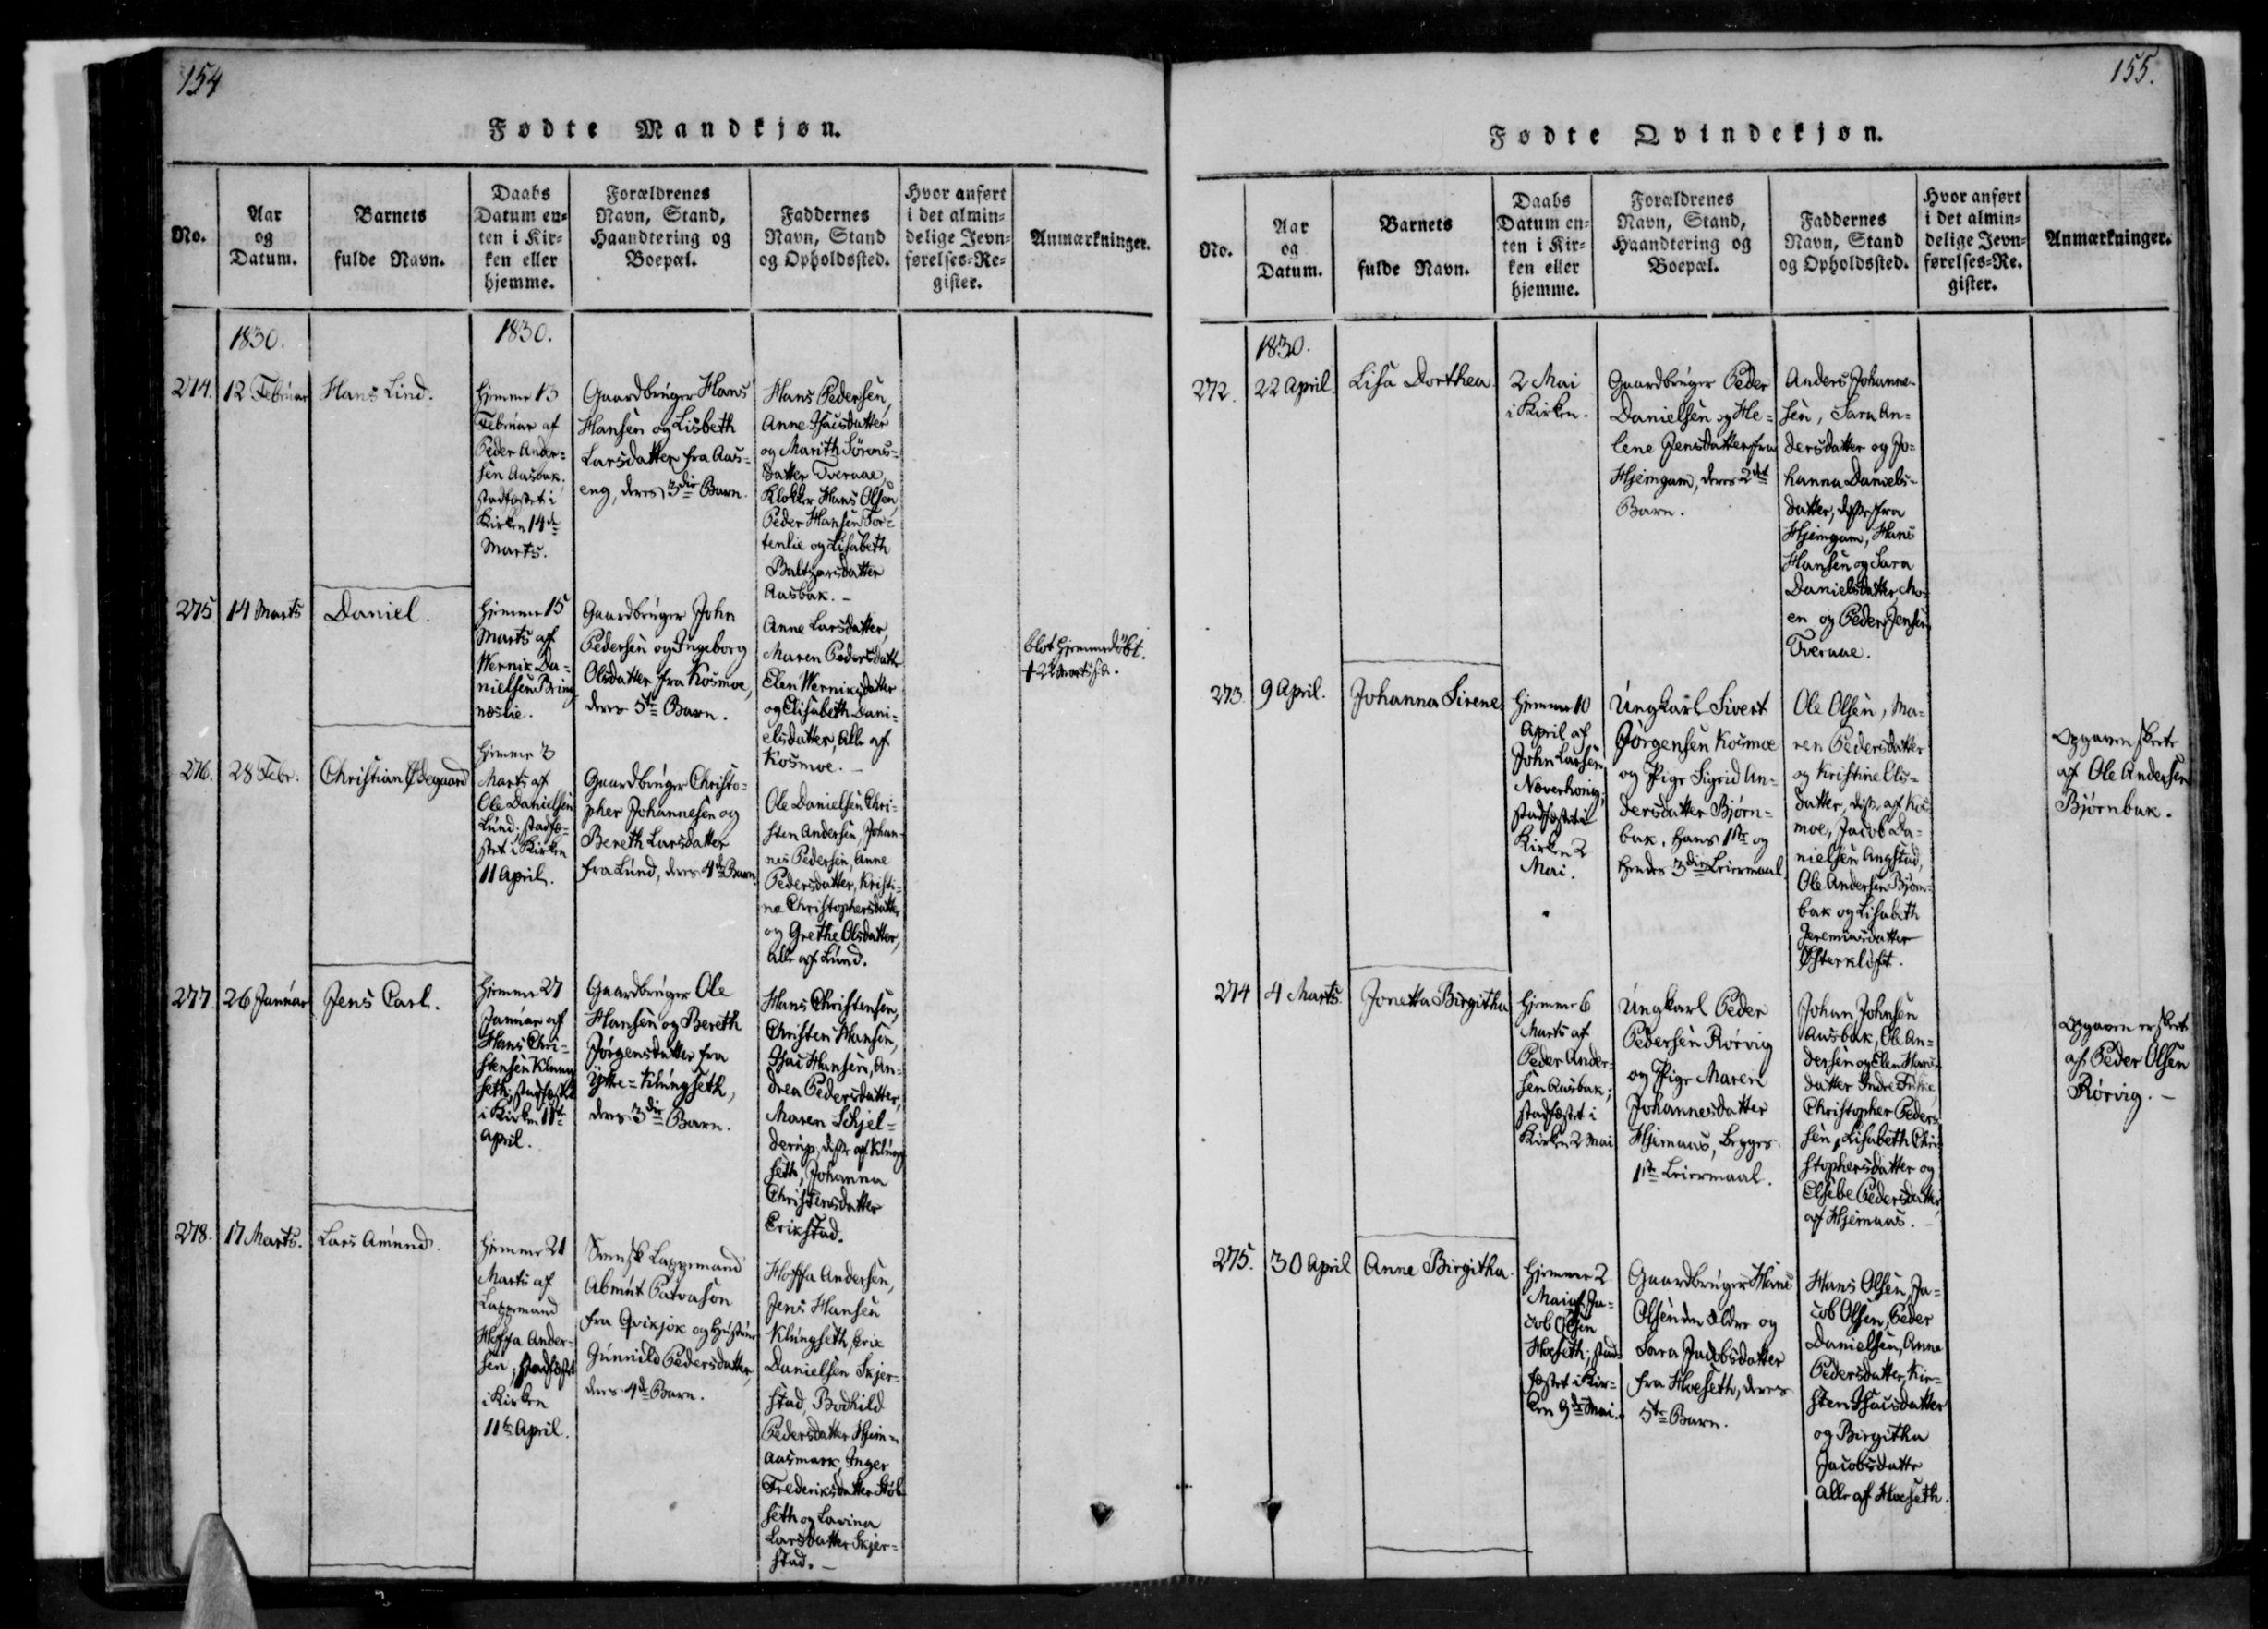 154
Fødte Mandkjøn.
No.
Aar
og
Datum.
Barnets
fulde Navn.
Daabs
Datum en-
ten i Kir-
ken eller
hjemme.
Forældrenes
Navn, Stand,
Haandtering og
Boepæl.
Faddernes
Navn, Stand
og Opholdssted.
Hvor anført
i det almin-
delige Jevn-
førelses-Re-
gister.
Anmærkninger.
1830.
1830.
274.
12 Februar
Hans Lind.
hjemme 13
Februar af
Peder Ander-
sen Aasbak.
stadfæstet i
Kirken 14de
Marts.
Gaardbruger Hans
Hansen og Lisbeth
Larsdatter fra Aas-
eng, deres 3die Barn.
Hans Pedersen,
Anne Isaisdatter
og Marith Sørens-
datter Tveraae,
Klokker Hans Olsen,
Peder Hansen For-
tenlie og Lisabeth
Baltzarsdatter
Aasbak. –
275
14 Marts
Daniel.
hjemme 15
Marts af
Wernik Da-
nielsen Bring
næslie.
Gaardbruger John
Pedersen og Ingeborg
Olsdatter fra Kosmoe,
deres 5te Barn.
Anne Larsdatter,
Maren Pedersdatter
Elen Werniksdatter
og Elisabeth Dani-
elsdatter, Alle af
Kosmoe. –
blot hjemmedøbt.
† 22 Marts s. A.
276.
28 Febr.
Christian Ødegaard
hjemme 3
Marts af
Ole Danielsen
Lund; stadfæ-
stet i Kirken
11 April.
Gaardbruger Christo-
pher Johannesen og
Bereth Larsdatter
fra Lund, deres 4de Barn.
Ole Danielsen Chri-
sten Andersen, Johan-
nes Pedersen, Anne
Pedersdatter, Kristi-
ne Christophersdatter
og Grethe Olsdatter,
Alle af Lund.
277.
26 Januar
Jens Carl.
hjemme 27
Januar af
Hans Chri-
stensen Klung
seth; stadfæstet
i Kirken 11te
April.
Gaardbruger Ole
Hansen og Bereth
Jørgensdatter fra
Ytre-Klungseth,
deres 3die Barn.
Hans Christensen,
Christen Hansen,
Isai Hansen, An-
drea Pedersdatter,
Maren Schjel-
derup, disse af Klung
seth, Johanna
Christensdatter
Erikstad.
278.
17 Marts.
Lars Amund.
hjemme 21
Marts af
Lappmand
Hoffa Ander-
sen, stadfæstet
i Kirken
11te April.
Svensk Lappmand
Abmut Patvason
fra Qvikjok og Hustrue
Gunnild Pedersdatter,
deres 4de Barn.
Hoffa Andersen,
Jens Hansen
Klungseth, Erik
Danielsen Skjer-
stad, Bodhild
Pedersdatter Hjem-
aasmark, Inger
Frederiksdatter
seth og Lavina
Larsdatter Skjer-
stad. –
155.
Fødte Qvindekjøn.
No.
Aar
og
Datum.
Barnets
fulde Navn.
Daabs
Datum en-
ten i Kir-
ken eller
hjemme.
Forældrenes
Navn, Stand,
Haandtering og
Boepæl.
Faddernes
Navn, Stand
og Opholdssted.
Hvor anført
i det almin-
delige Jevn-
førelses-Re-
gister.
Anmærkninger.
1830.
272.
22 April.
Lisa Dorthea.
2 Mai
i Kirken.
Gaardbruger Peder
Danielsen og He-
lene Jensdatter fra
Hjemgam, deres 2det
Barn.
Anders Johanne-
sen, Sara An-
dersdatter og Jo-
hanna Daniels-
datter, disse fra
Hjemgam, Hans
Hansen og Sara
Danielsdatter Mo-
en og Peder Jensen
Tveraae.
273.
9 April.
Johanna Sirene
hjemme 10
April af
John Larsen
Næverhonig;
stadfæstet i
Kirken 2
Mai.
Ungkarl Sivert
Jørgensen Kosmoe
og Pige Sigrid An-
dersdatter Bjørn-
bak. Hans 1ste og
hendes 3die Leiermaal.
Ole Olsen, Ma-
ren Pedersdatter
og Kristine Ols-
datter, disse af Kos
moe, Jacob Da-
nielsen Angstad,
Ole Andersen Bjørn-
bak og Lisabeth
Jeremiasdatter
Østerkløft.
Opgaven skeete
af Ole Andersen
Bjørnbak.
274
4 Marts.
Jonetta Birgitha
hjemme 6
Marts af
Peder Ander-
sen Aasbak;
stadfæstet i
Kirken 2 Mai
Ungkarl Peder
Pedersen Rørvig
og Pige Maren
Johannesdatter
Hjemaas, begges
1ste Leiermaal.
Johan Johnsen
Aasbak, Ole An-
dersen og Elen Hans-
datter Indre
Christopher Peder-
sen, Lisabeth Chri-
stophersdatter og
Elsebe Pedersdatter,
af Hjemaas. –
Opgaven er skeet
af Peder Olsen
Rørvig. –
275.
30 April
Anne Birgitha.
hjemme 2
Mai af Ja-
cob Olsen
Hoeseth; stad-
fæstet i Kir-
ken 9de Mai.
Gaardbruger Hans
Olsen den Ældre og
Sara Jacobsdatter
fra Hoeseth, deres
5te Barn.
Hans Olsen, Ja-
cob Olsen, Peder
Danielsen, Anne
Pedersdatter, Kir-
sten Isaisdatter
og Birgitha
Jacobsdatter
Alle af Hoeseth.